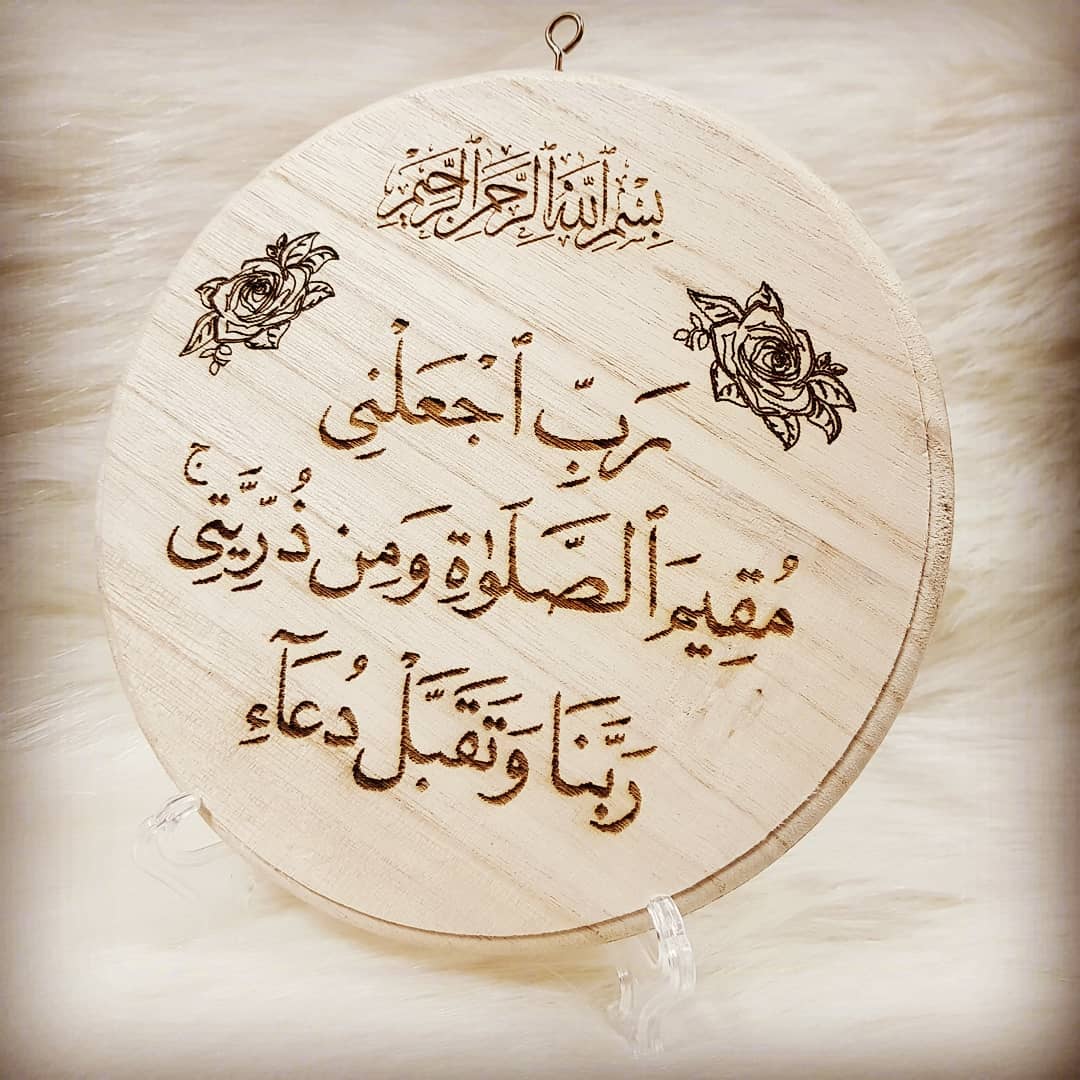 بِسْمِ ٱللَّهِ ٱلرَّحْمَٰنِ ٱلرَّحِيمِ
رَبِّ ٱجْعَلْنِي
مُقِيمَ ٱلصَّلَوٰةِ وَمِن ذُرِّيَّتِي ۚ
رَبَّنَا وَتَقَبَّلْ دُعَآءِ